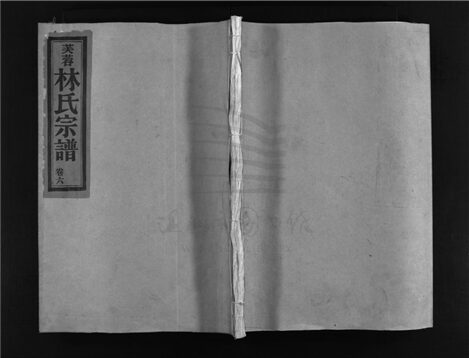 芙蓉
林氏宗譜
卷六